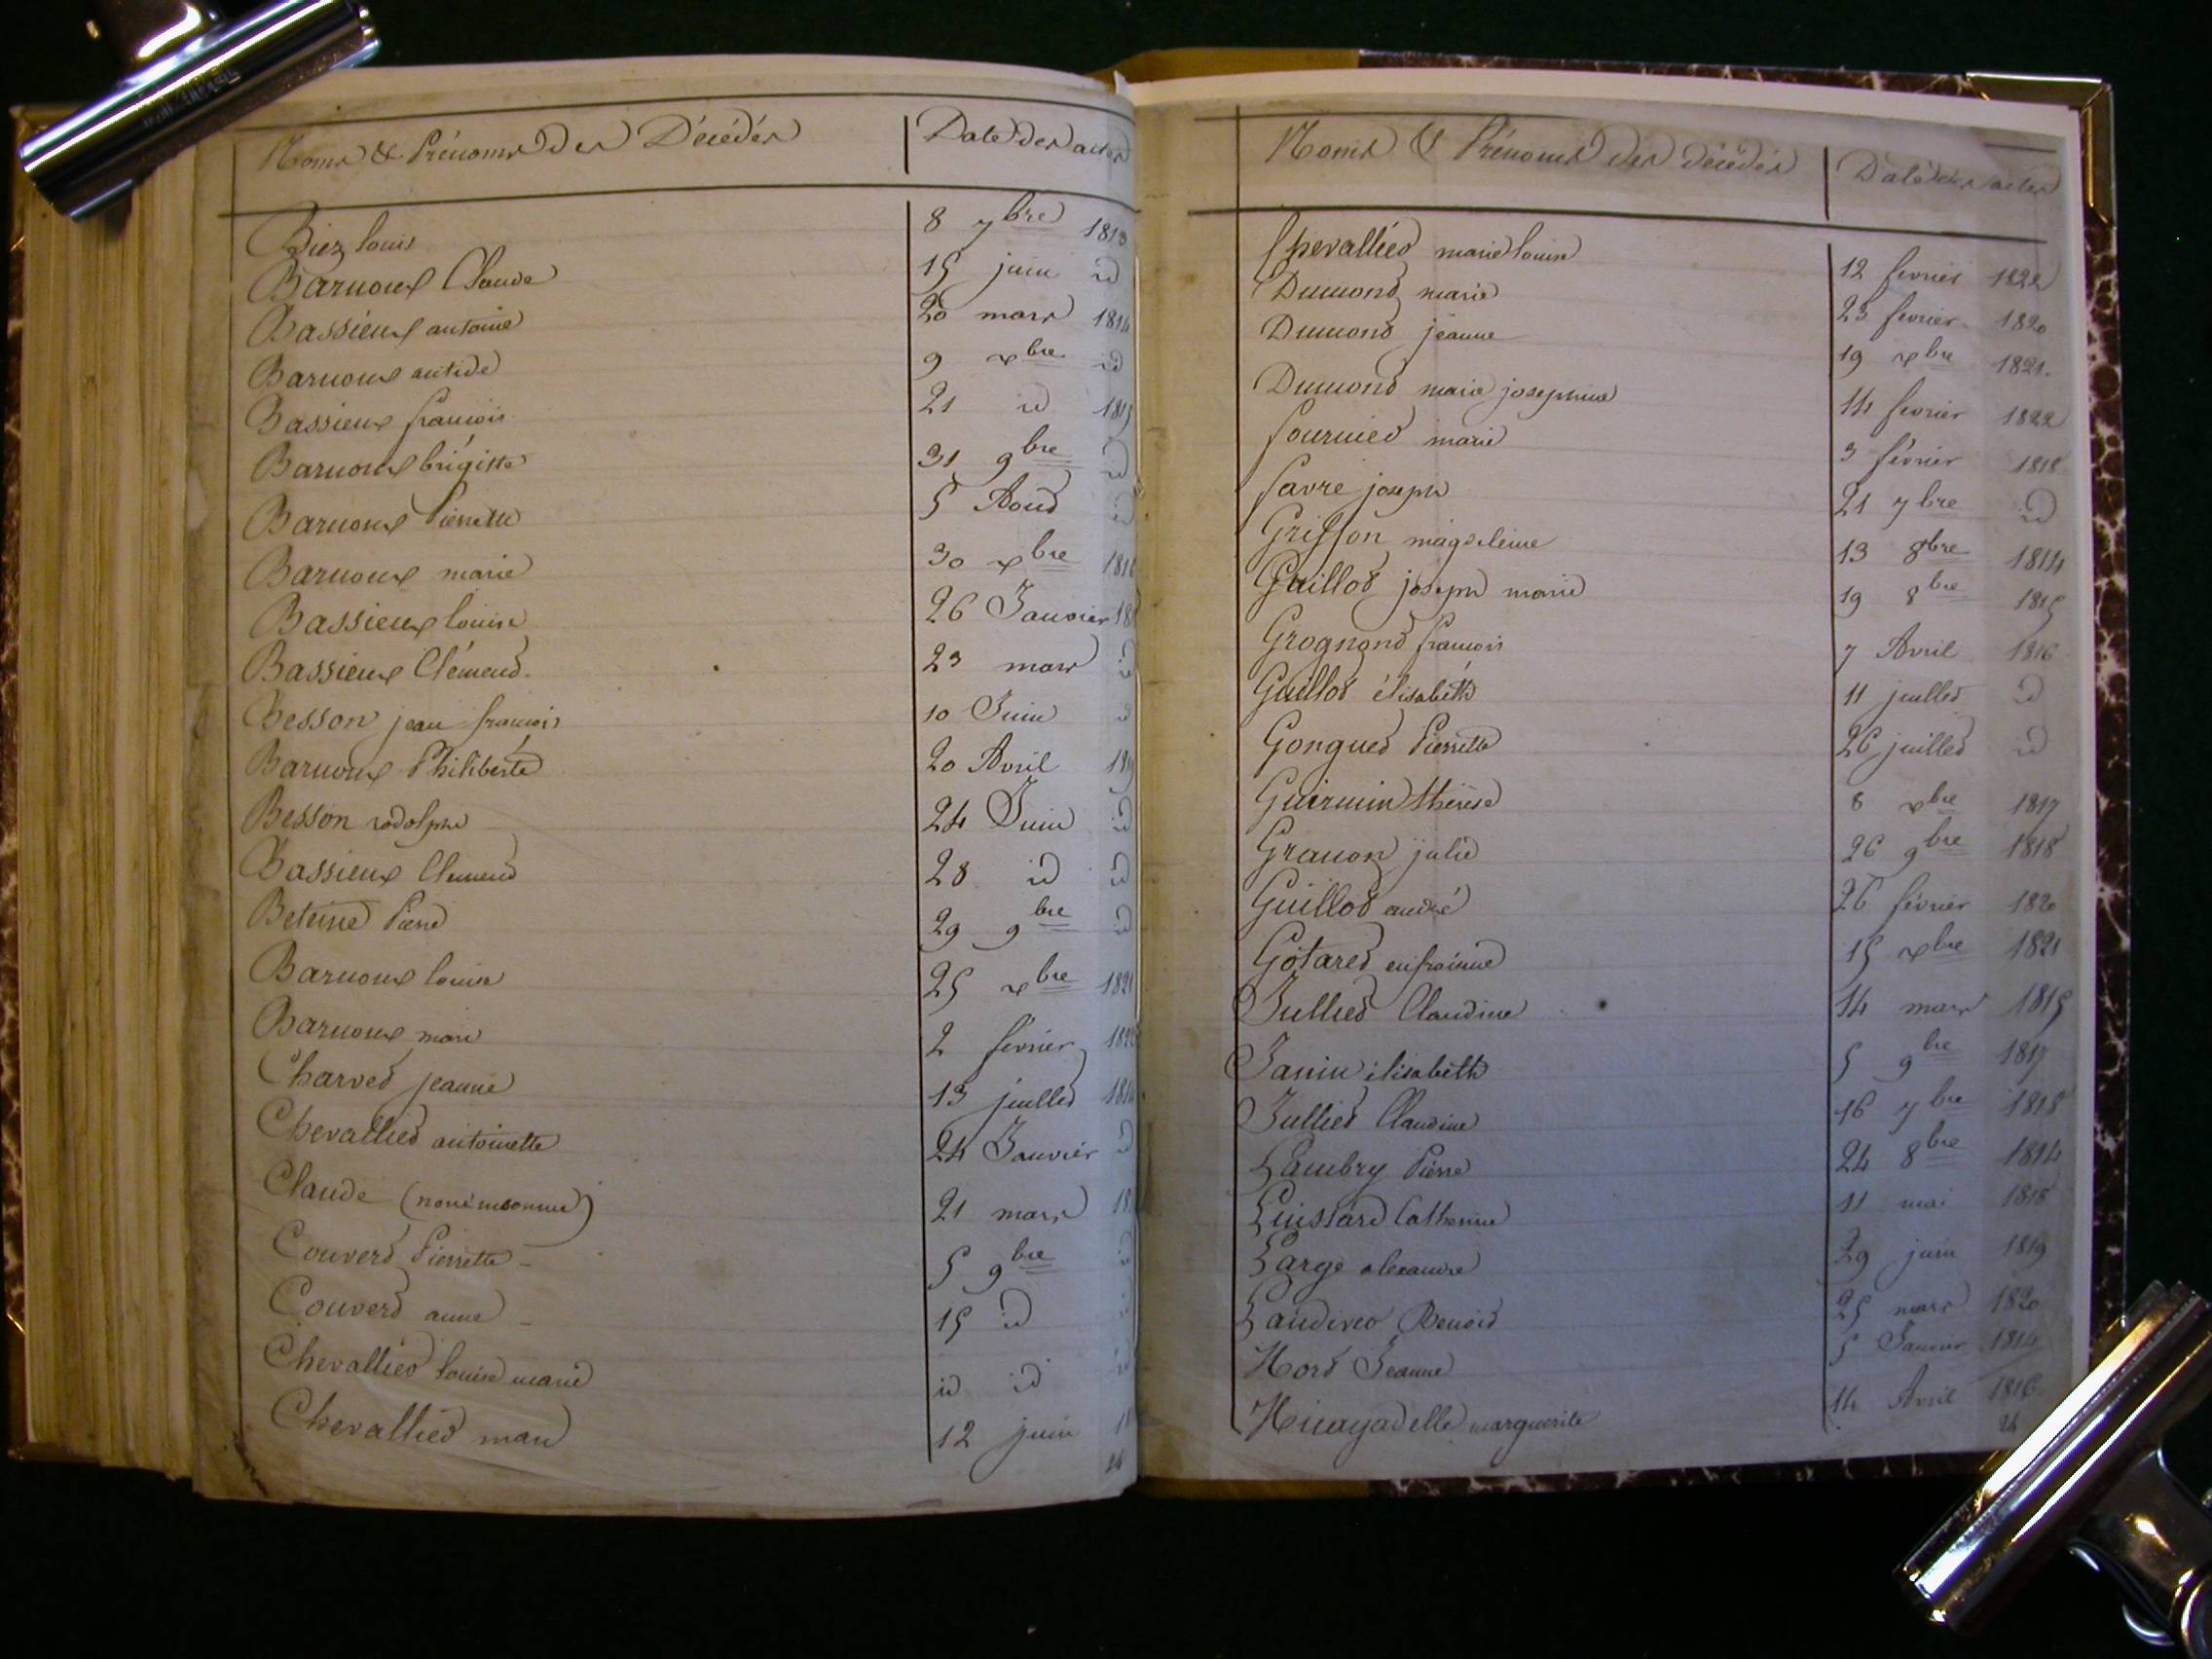 Noms & Prénoms des Décédés Date des actes
Biez louis 8 7bre 1813
Barnoux Claude 15 juin id
Bassieux antoine 20 mars 1814
Barnoux antide 9 xbre id
Bassieux francois 21 id 1815
Barnoux brigitte 31 9bre id
Barnoux Pierrette 5 Aout id
Barnoux marie 30 xbre 1816
Bassieux louise 26 Janvier
Bassieux Clément 23 mars id
Besson jean francois 10 Juin id
Barnoux Philiberte 20 Avril 1819
Besson rodolphe 24 Juin id
Bassieux Clement 28 id id
Beteine Pierre 29 9bre id
Barnoux louise 25 xbre 1821
Barnoux marie 2 février 1822
Charvet jeanne 13 juillet 1814
Chevallier antoinette 24 Janvier id
Claude (nom inconnu) 21 mars
Couvert Pierrette 5 9bre id
Couvert anne 15 id id
Chevallier louise marie id id id
Chevallier marie 12 juin
24
Noms & Prénoms des décédés Date des actes
Chevallier marie louise 12 fevrier 1822
Dumond marie 23 fevrier 1820
Dumond jeanne 19 xbre 1821
Dumond marie josephine 14 fevrier 1822
fournier marie 3 février 1818
favre joseph 21 7bre id
Griffon magdeleine 13 8bre 1814
Guillot joseph marie 19 8bre 1815
Grognond francois 7 Avril 1816
Guillot élisabeth 11 juillet id
Gonguet Pierrette 26 juillet id
Guirmin thérèse 8 xbre 1817
Granon julie 26 9bre 1818
Guillot andré 26 février 1820
Gotaret eufroisine 15 xbre 1821
Jullied Claudine 14 mars 1815
Janin élisabeth 5 9bre 1817
Jullied Claudine 16 7bre 1818
Lambry Pierre 24 8bre 1814
Luissard Catherine 11 mai 1818
Large alexandre 29 juin 1819
Landivco Benoit 25 mars 1820
Nord Jeanne 5 Janvier 1814
marguerite 14 Avril 1816
24